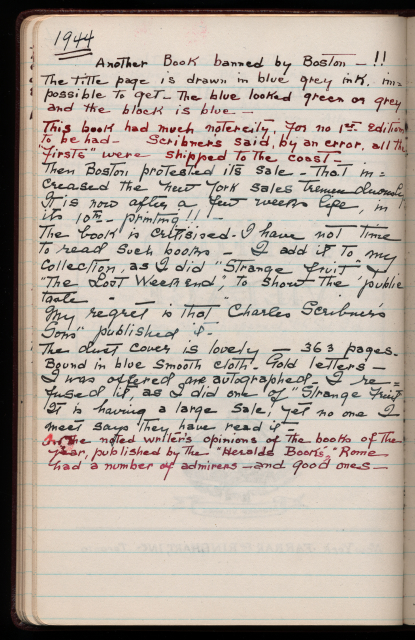 1944
Another Book banned by Boston - !!
The title page is drawn in blue grey ink, im=
possible to get - The blue looked green or grey
and the black is blue -
This book had much notoreity, For no 1st Edition
to be had - Scribners said, by an error, all the
"firsts" were shipped to the coast -
Then Boston protested its sale - That in =
creased the New York sales tremenduously
It is now after a few weeks life, in
its 10th - printing !!! -
The book is critisised - I have not time
to read such books - I add it to my
Collection, as I did "Strange fruit" &
"The Lost Weekend", to show the public
taste -
My regret is that "Charles Scribner's
Sons" published it -
The dust cover is lovely - 363 pages -
Bound in blue smooth cloth - Gold letters -
I was offered an autographed, I re =
fused it, as I did one of "Strange Fruit"
It is having a large sale, yet no one I
meet says they have read it -
In the noted writer's opinions of the books of the
year, published by the "Heralds Books", "Rome
had a number of admirers - and good ones -